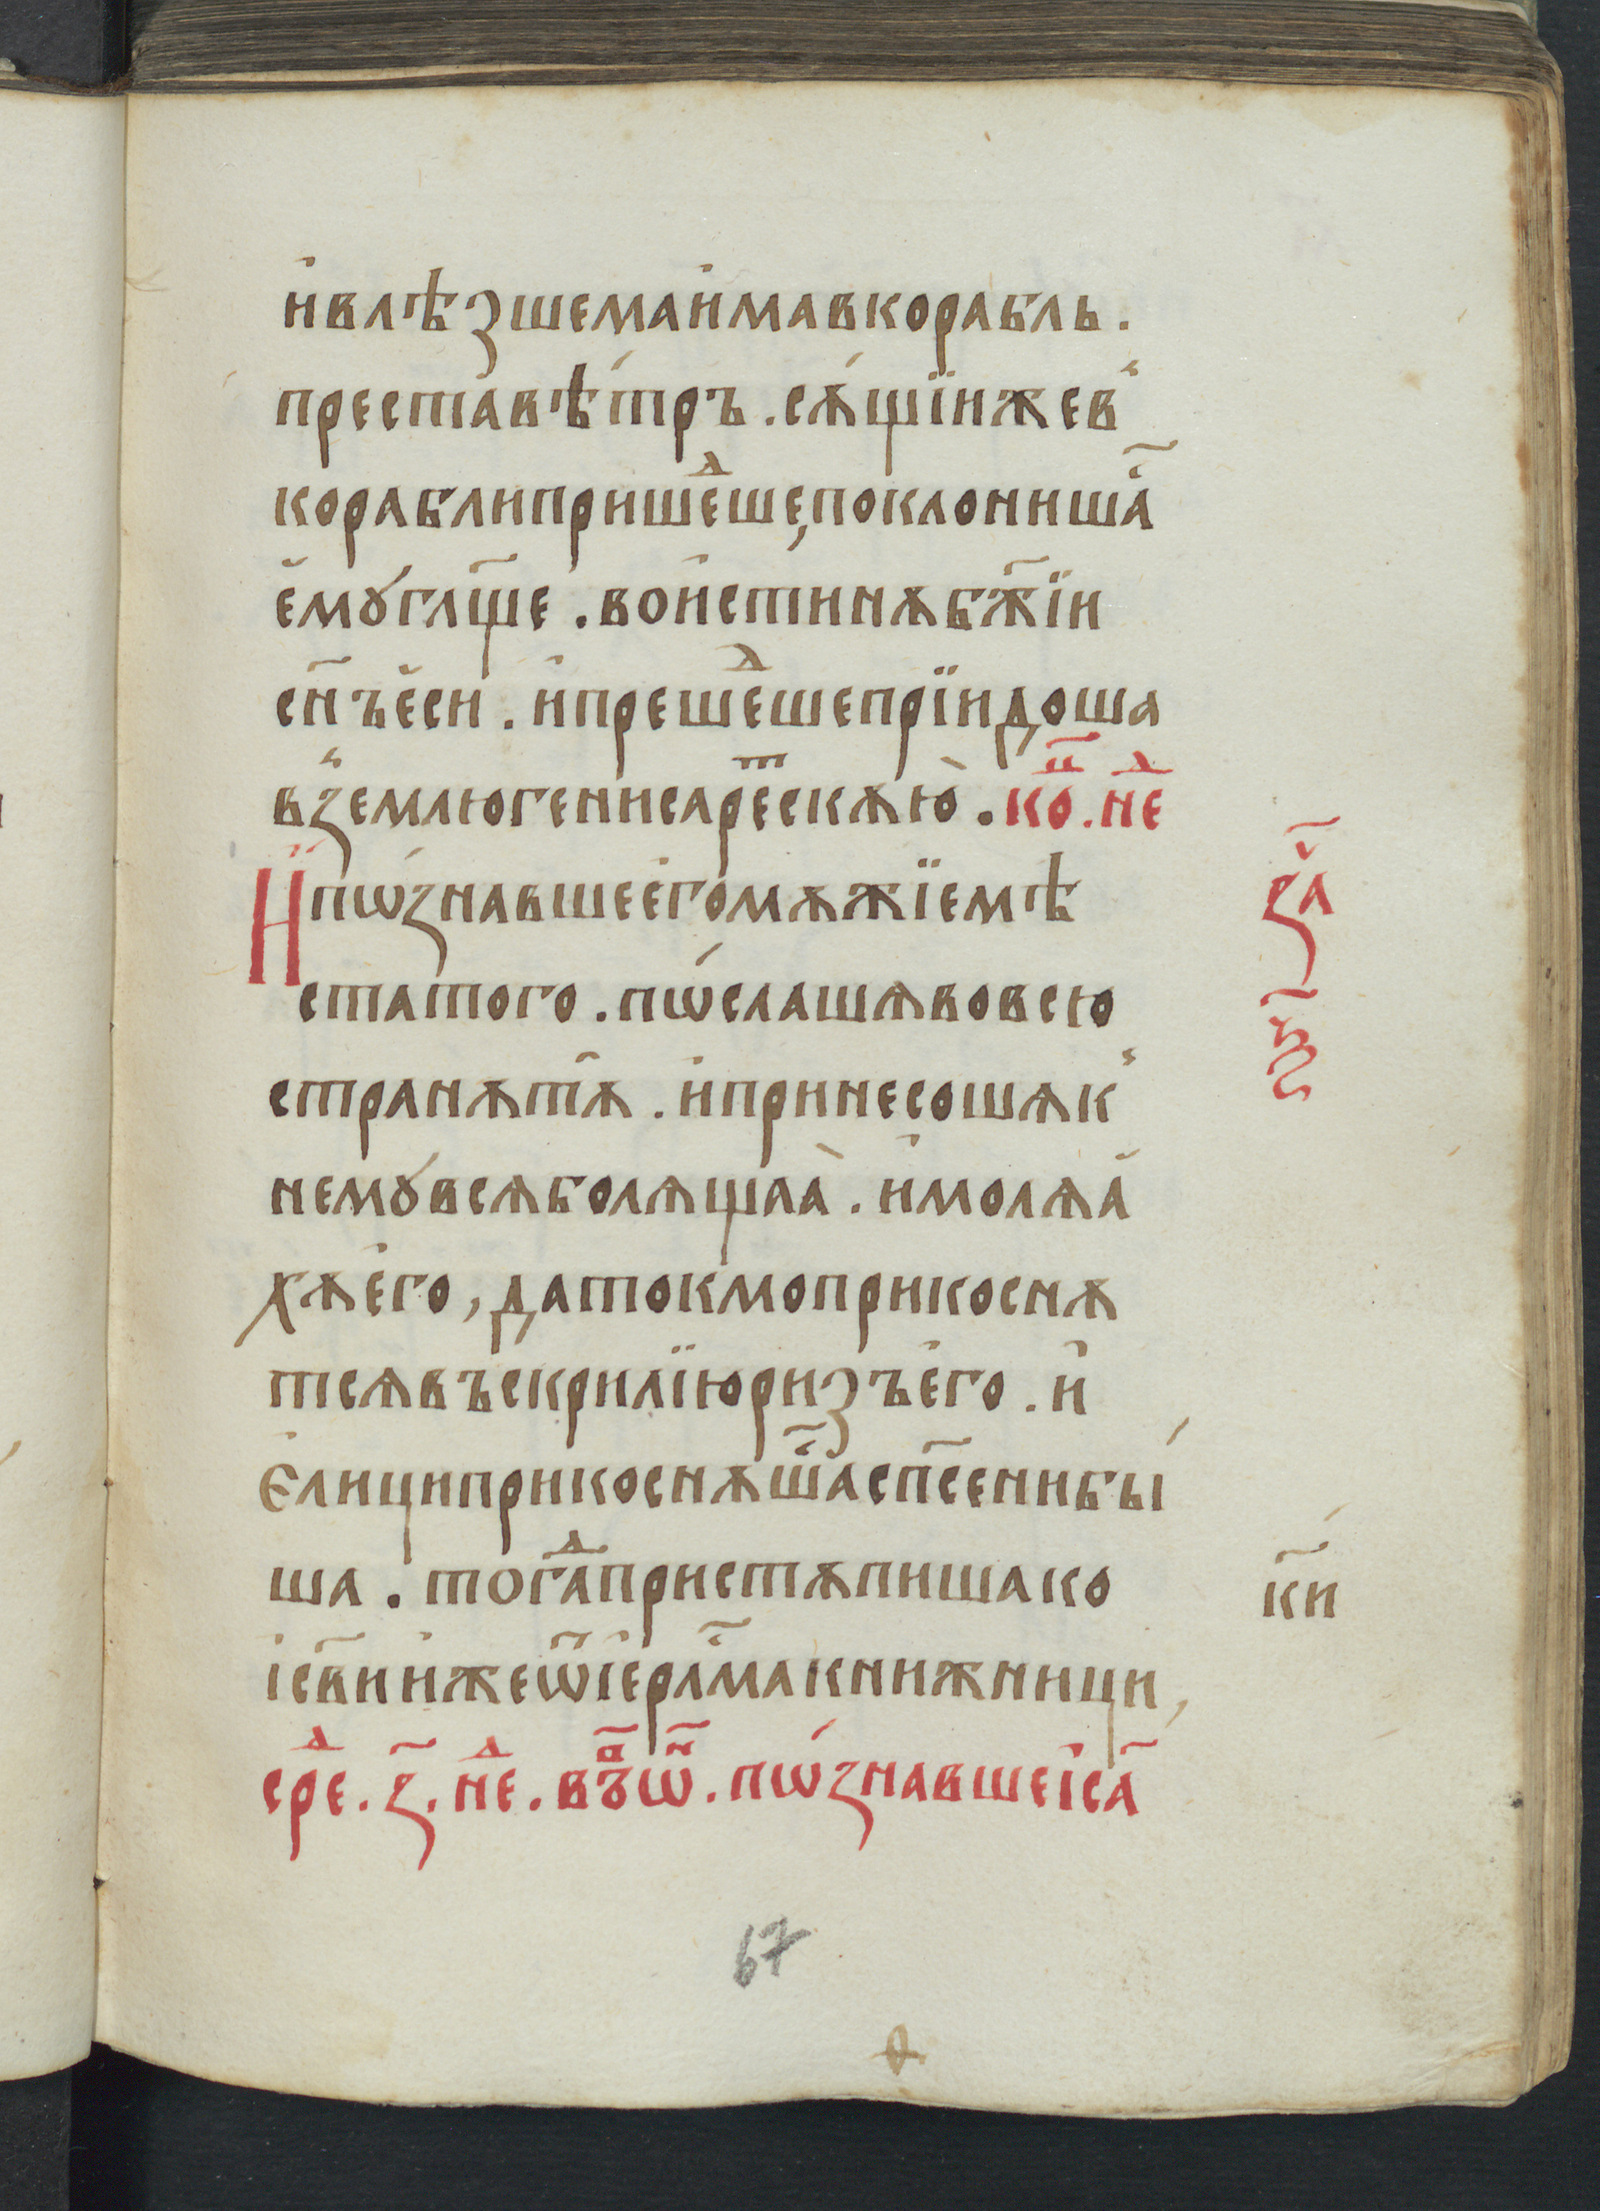 и҆влѣзшемаи҆мавкорабль.
преста́вѣ́тръ.сѫ́щїижев̾
кораблипришеⷣше,поклонишаⷭ҇
є҆моу́гл҃ще.вои҆стинѫбж҃їи
сн҃ъє҆си.и҆прешеⷣшеприїидоша
в̾землюгенисареⷮскѫю̀.коⷩ҇.неⷣ
И҆пѡ́знавшеє҆гомѫжїемѣ
статого.пѡ́слашѧвовсю
странѫтѫ.и҆принесошѧк̾
немоу́всѧболѧщаа̀.и҆молѧа҆
хѫє҆го,датокмоприкоснѫ
тсѧвъскрилїюризъє҆го.и҆
є҆лициприкоснѫшаⷭ҇сп҃сенибы́
ша.тогаⷣпристѫпишако
і҆св҃ии҆жеѿі҆ерⷭ҇лмакнижници,
среⷣ.з҃.неⷣ.въⷫ҇ѡⷩ҇.пѡ́знавшеі҆саⷭ҇
за҃ⷱ҇
н҃з
к҃и
67